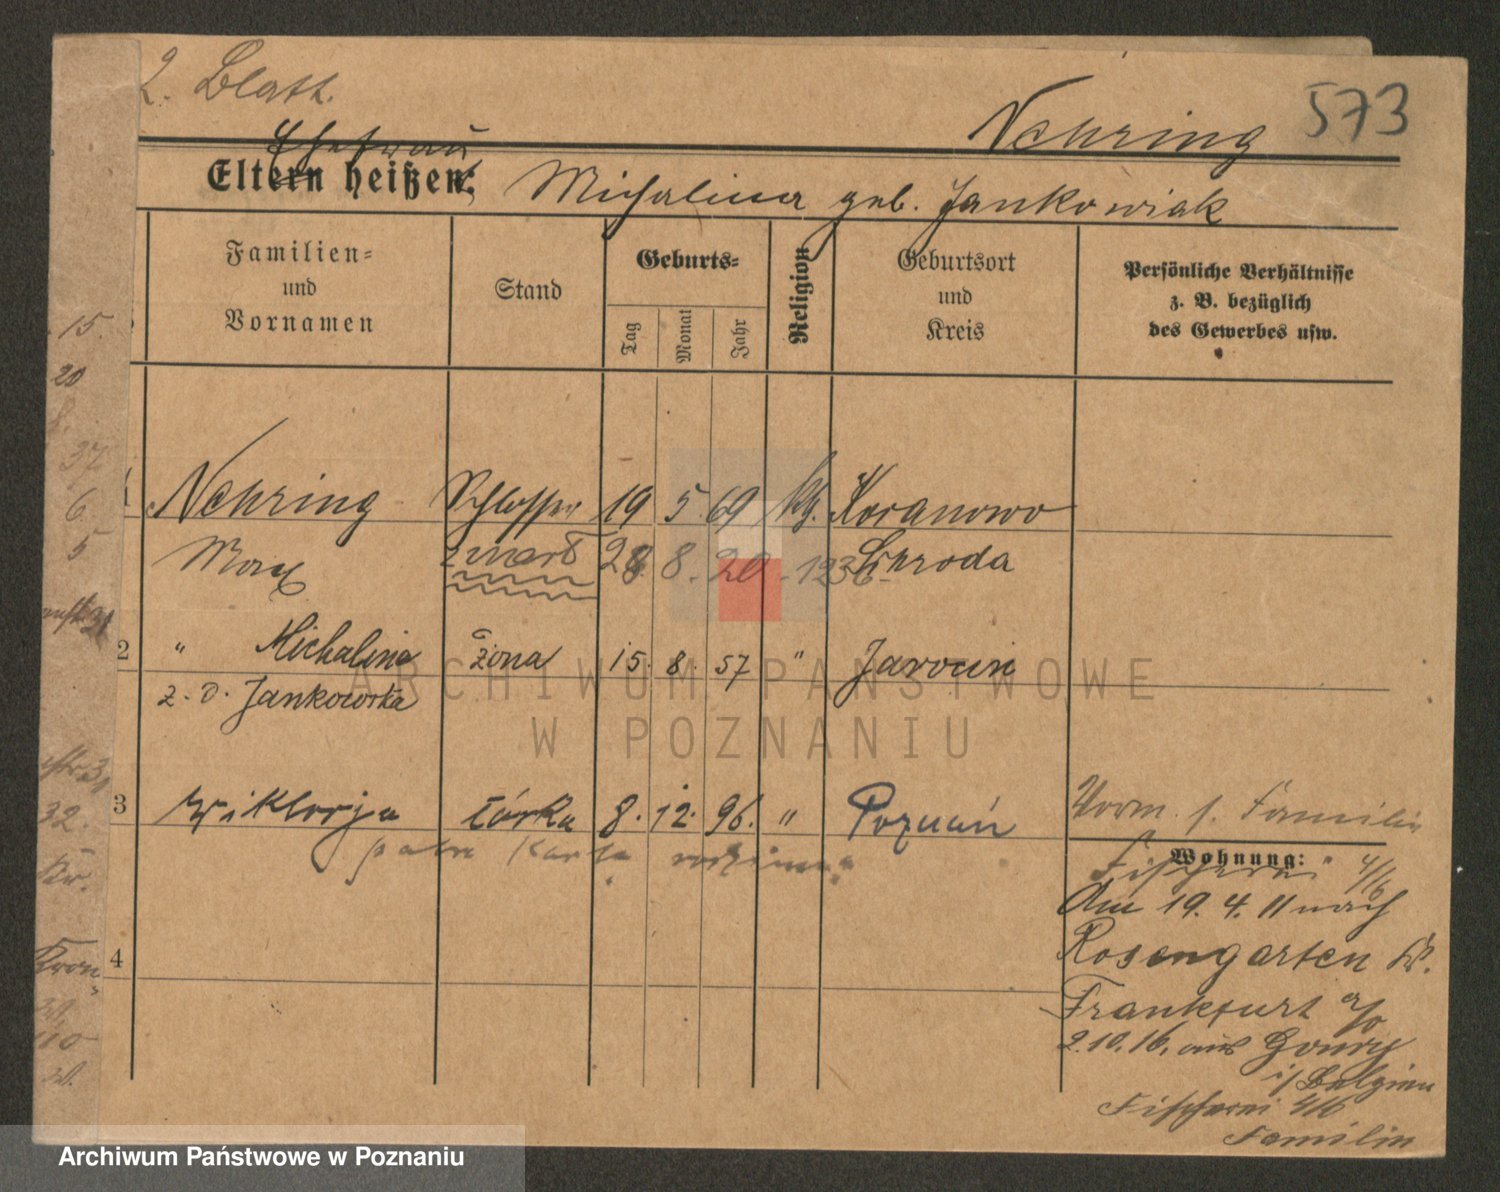 2. Blatt.
Nehring 573
Ehefrau
Eltern heißen: Michalina geb. Jankowiak
Familien=
und
Vornamen
Stand
Geburts=
Tag
Monat
Jahr
Religion
Geburtsort
und
Kreis
Persönliche Verhältnisse
z. B. bezüglich
des Gewerbes usw.
15
20
37
6
5
1 Nehring Schlosser 19 5 69 kg. Koranowo
Max zmarł 28. 8. 20 - 1236 Schroda
2 " Michalina żona 15. 8. 57 " Jarocin
z. d. Jankowska
3 Wiktorja córka 8. 12. 96. " Poznań
Vorm. s. Familie
32.
Wohnung:
Fischerei 4/6
Am 19. 4. 11 nach
Rosengarten Kr.
4
Frankfurt a/o
2.10.16. aus Gouvy
i/Belgien
Fischerei 4/6
Familie
ARCHIWUM PAŃSTWOWE
W POZNANIU
Archiwum Państwowe w Poznaniu